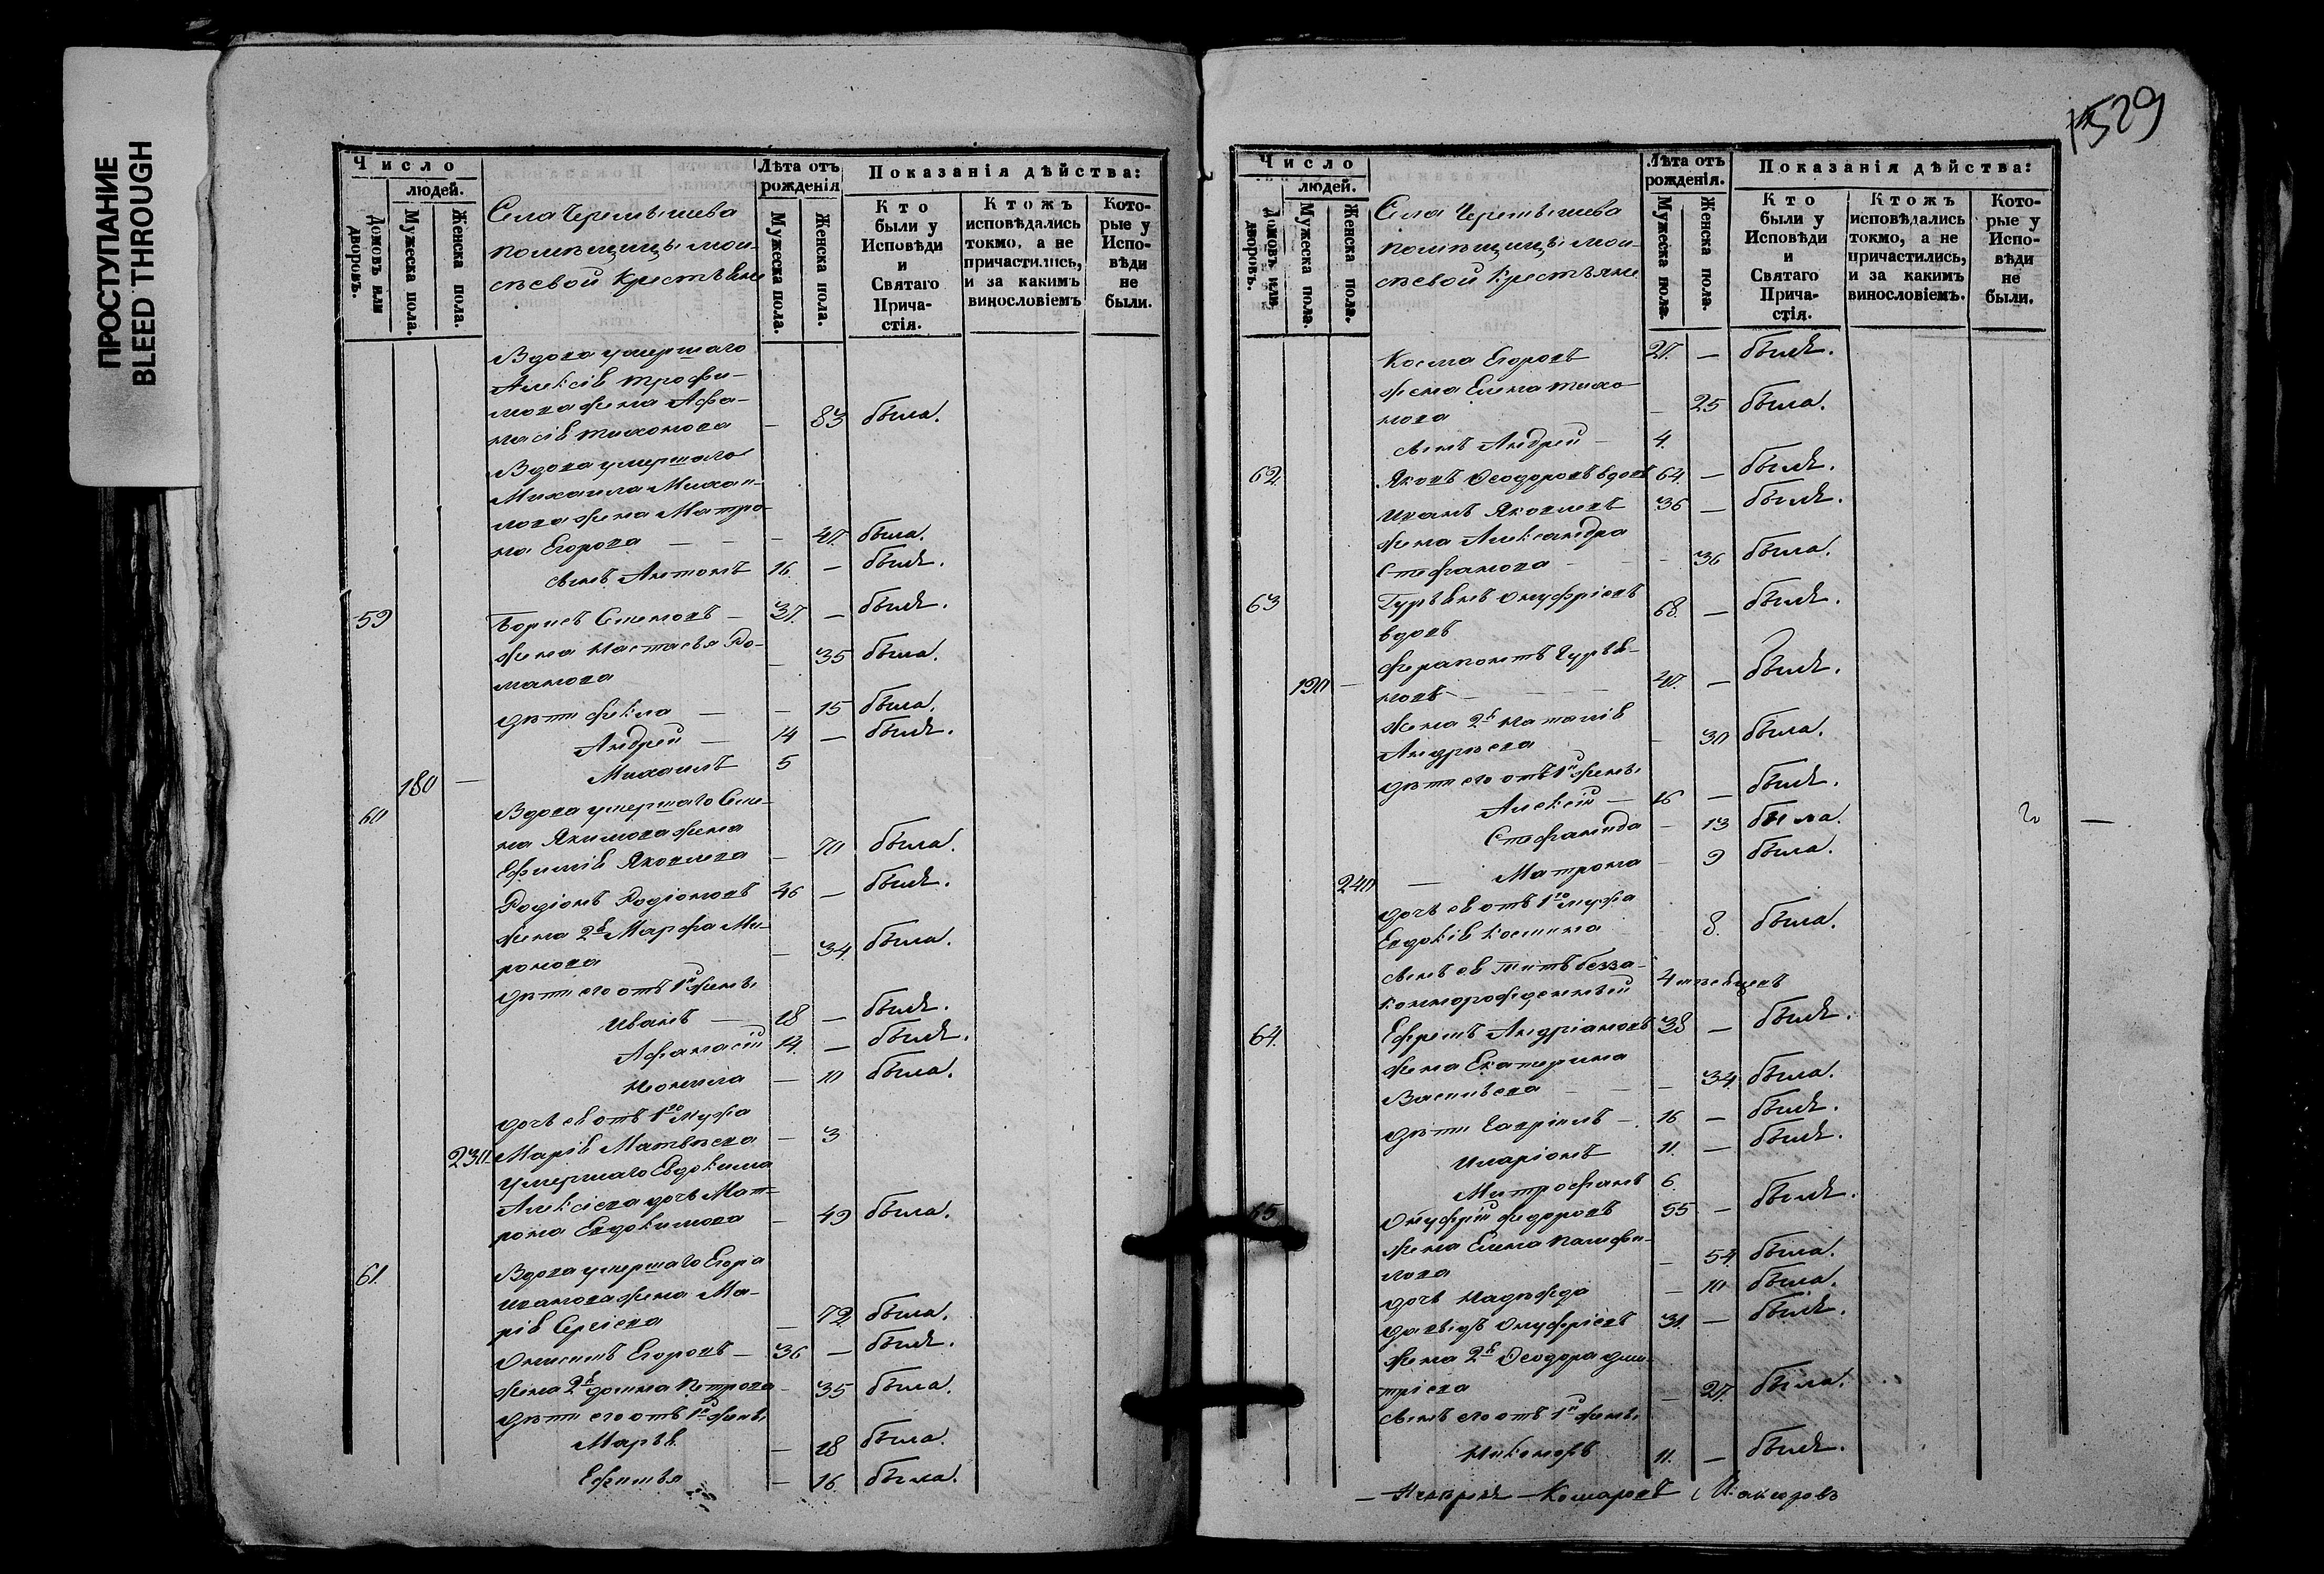 ПРОСТУПАНИЕ
BLEED THROUGH
Число
людей.
Домовъ или дворовъ.
Мужеска пола.
Женска пола.
Села Черемышева
помѣщицы Мои-
сѣевой Крестьяне
Лѣта отъ рожденія
Мужеска пола.
Женска пола.
Показанія дѣйства:
Кто были у Исповѣди и Святаго Прича-стія.
Ктожъ исповѣдались токмо, а не причастились, и за какимъ винословіемъ
Кото-рые у Испо-вѣди не были.
Вдова умершаго
Алексія Трофи-
мова жена Афа-
насія Тихонова — 83 была.
Вдова умершаго
Михаила Михаи-
лова жена Матро-
на Егорова — — — 47. была.
сынъ Антонъ 16. — былъ.
59 Борисъ Семеновъ — 37. — былъ.
жена Настасья Ро-
манова — 35 была.
дѣти Фекла — — 15 была.
Андрей — 14 — былъ.
180 — Михаилъ 5
60 Вдова умершаго Семе-
на Якимова жена
Ефимія Яковлева — 70 была.
Родіонъ Родіоновъ 46 — былъ.
жена 2я Марфа Ми-
ронова — 34 была.
дѣти его отъ 1й жены
Иванъ — 18 — былъ.
Афанасій 14. — былъ.
Неонила — 10 была.
дочь ея отъ 1го мужа
230 Марія Матвѣева — 3
умершаго Евдокима
Алексіева дочь Мат-
рона Евдокимова — 49 была.
61. Вдова умершаго Егора
Иванова жена Ма-
рія Сергіева — 72 была.
Онисимъ Егоровъ — 36 — былъ.
жена 2я Домна Петрова — 35 была.
дѣти его отъ 1й жены
Марья — 18 была.
Ефимья — 16 была.
529
Число
людей.
Домовъ или дворовъ.
Мужеска пола.
Женска пола.
Села Черемышева
помѣщицы Мои-
сѣевой Крестьяне
Лѣта отъ рожденія.
Мужеска пола.
Женска пола.
Показанія дѣйства:
Кто были у Исповѣди и Святаго Прича-стія.
Ктожъ исповѣдались токмо, а не причастились, и за какимъ винословіемъ.
Кото-рые у Испо-вѣди не были.
Косма Егоровъ 27. — былъ.
жена Елена Тихо-
нова — 25 была.
сынъ Андрей — 4.
62. Яковъ Ѳеодоровъ вдовъ 64 — былъ.
Иванъ Яковлевъ 36 — былъ.
жена Александра
Стефанова — — 36 была.
63 Гурьянъ Онуфріевъ
вдовъ 68. — былъ.
Ферапонтъ Гурья-
190 — новъ — 40. — былъ.
жена 2я Наталія
Андрѣева — 30 была.
дѣти его отъ 1й жены
Алексій — 16 — былъ.
Стефанида — 13 была.
Матрона — 9 была.
240 —
дочь ея отъ 1го мужа
Евдокія Космина 8. была.
сынъ ея Титъ безза-
коннорожденный 4 мѣсяцевъ
64. Ефремъ Андріановъ 38 — былъ.
жена Екатерина
Васильева — — — 34. была.
дѣти Гавріилъ — 16 — былъ.
Иларіонъ 11. — былъ.
Митрофанъ 6.
65 Онуфрій Федоровъ 55 — былъ.
жена Елена Памфи-
лова — 54 была.
дочь Надѣжда — 10 была.
Давыдъ Онуфріевъ 31. — былъ.
жена 2я Ѳеодора Дми-
тріева — 27. была.
сынъ его отъ 1й жены
Никаноръ 11. — былъ.